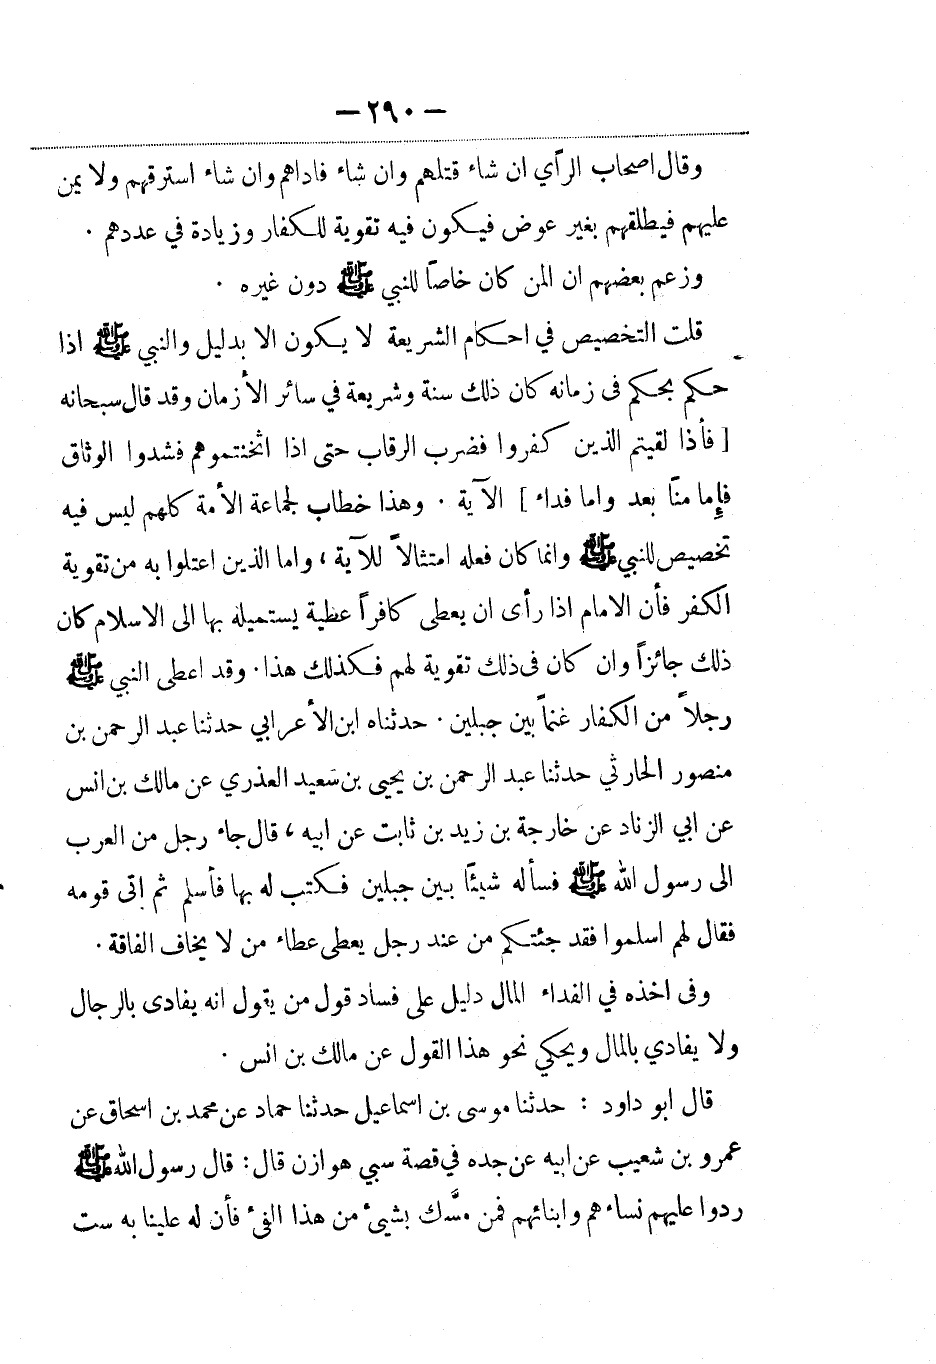 — ٢٩٠ —
وقال اصحاب الرأي ان شاء قتلهم وان شاء فاداهم وان شاء استرقهم ولا يمن
عليهم فيطلقهم بغير عوض فيكون فيه تقوية للكفار وزيادة في عددهم .
وزعم بعضهم ان المن كان خاصاً للنبي ﷺ دون غيره .
قلت التخصيص في احكام الشريعة لا يكون الا بدليل والنبي ﷺ اذا
حكم بحكم فى زمانه كان ذلك سنة وشريعة في سائر الأزمان وقد قال سبحانه
[ فأذا لقيتم الذين كفروا فضرب الرقاب حتى اذا اثخنتموهم فشدوا الوثاق
فإما مناً بعد واما فداء ] الآية . وهذا خطاب لجماعة الأمة كلهم ليس فيه
تخصيص للنبي ﷺ وانما كان فعله امتثالاً للآية ، واما الذين اعتلوا به من تقوية
الكفر فأن الامام اذا رأى ان يعطى كافراً عطية يستميله بها الى الاسلام كان
ذلك جائزاً وان كان فى ذلك تقوية لهم فكذلك هذا . وقد اعطى النبي ﷺ
رجلاً من الكفار غنماً بين جبلين . حدثناه ابن الأعرابي حدثنا عبد الرحمن بن
منصور الحارثي حدثنا عبد الرحمن بن يحيى بن سعيد العذري عن مالك بن انس
عن ابي الزناد عن خارجة بن زيد بن ثابت عن ابيه ، قال جاء رجل من العرب
الى رسول الله ﷺ فسأله شيئاً بين جبلين فكتب له بها فأسلم ثم اتى قومه
فقال لهم اسلموا فقد جئتكم من عند رجل يعطى عطاء من لا يخاف الفاقة .
وفى اخذه في الفداء المال دليل على فساد قول من يقول انه يفادى بالرجال
ولا يفادي بالمال ويحكي نحو هذا القول عن مالك بن انس .
قال ابو داود : حدثنا موسى بن اسماعيل حدثنا حماد عن محمد بن اسحاق عن
عمرو بن شعيب عن ابيه عن جده في قصة سبي هوازن قال : قال رسول الله ﷺ
ردوا عليهم نساءهم وابنائهم فمن مسَّك بشيء من هذا الفيء فأن له علينا به ست